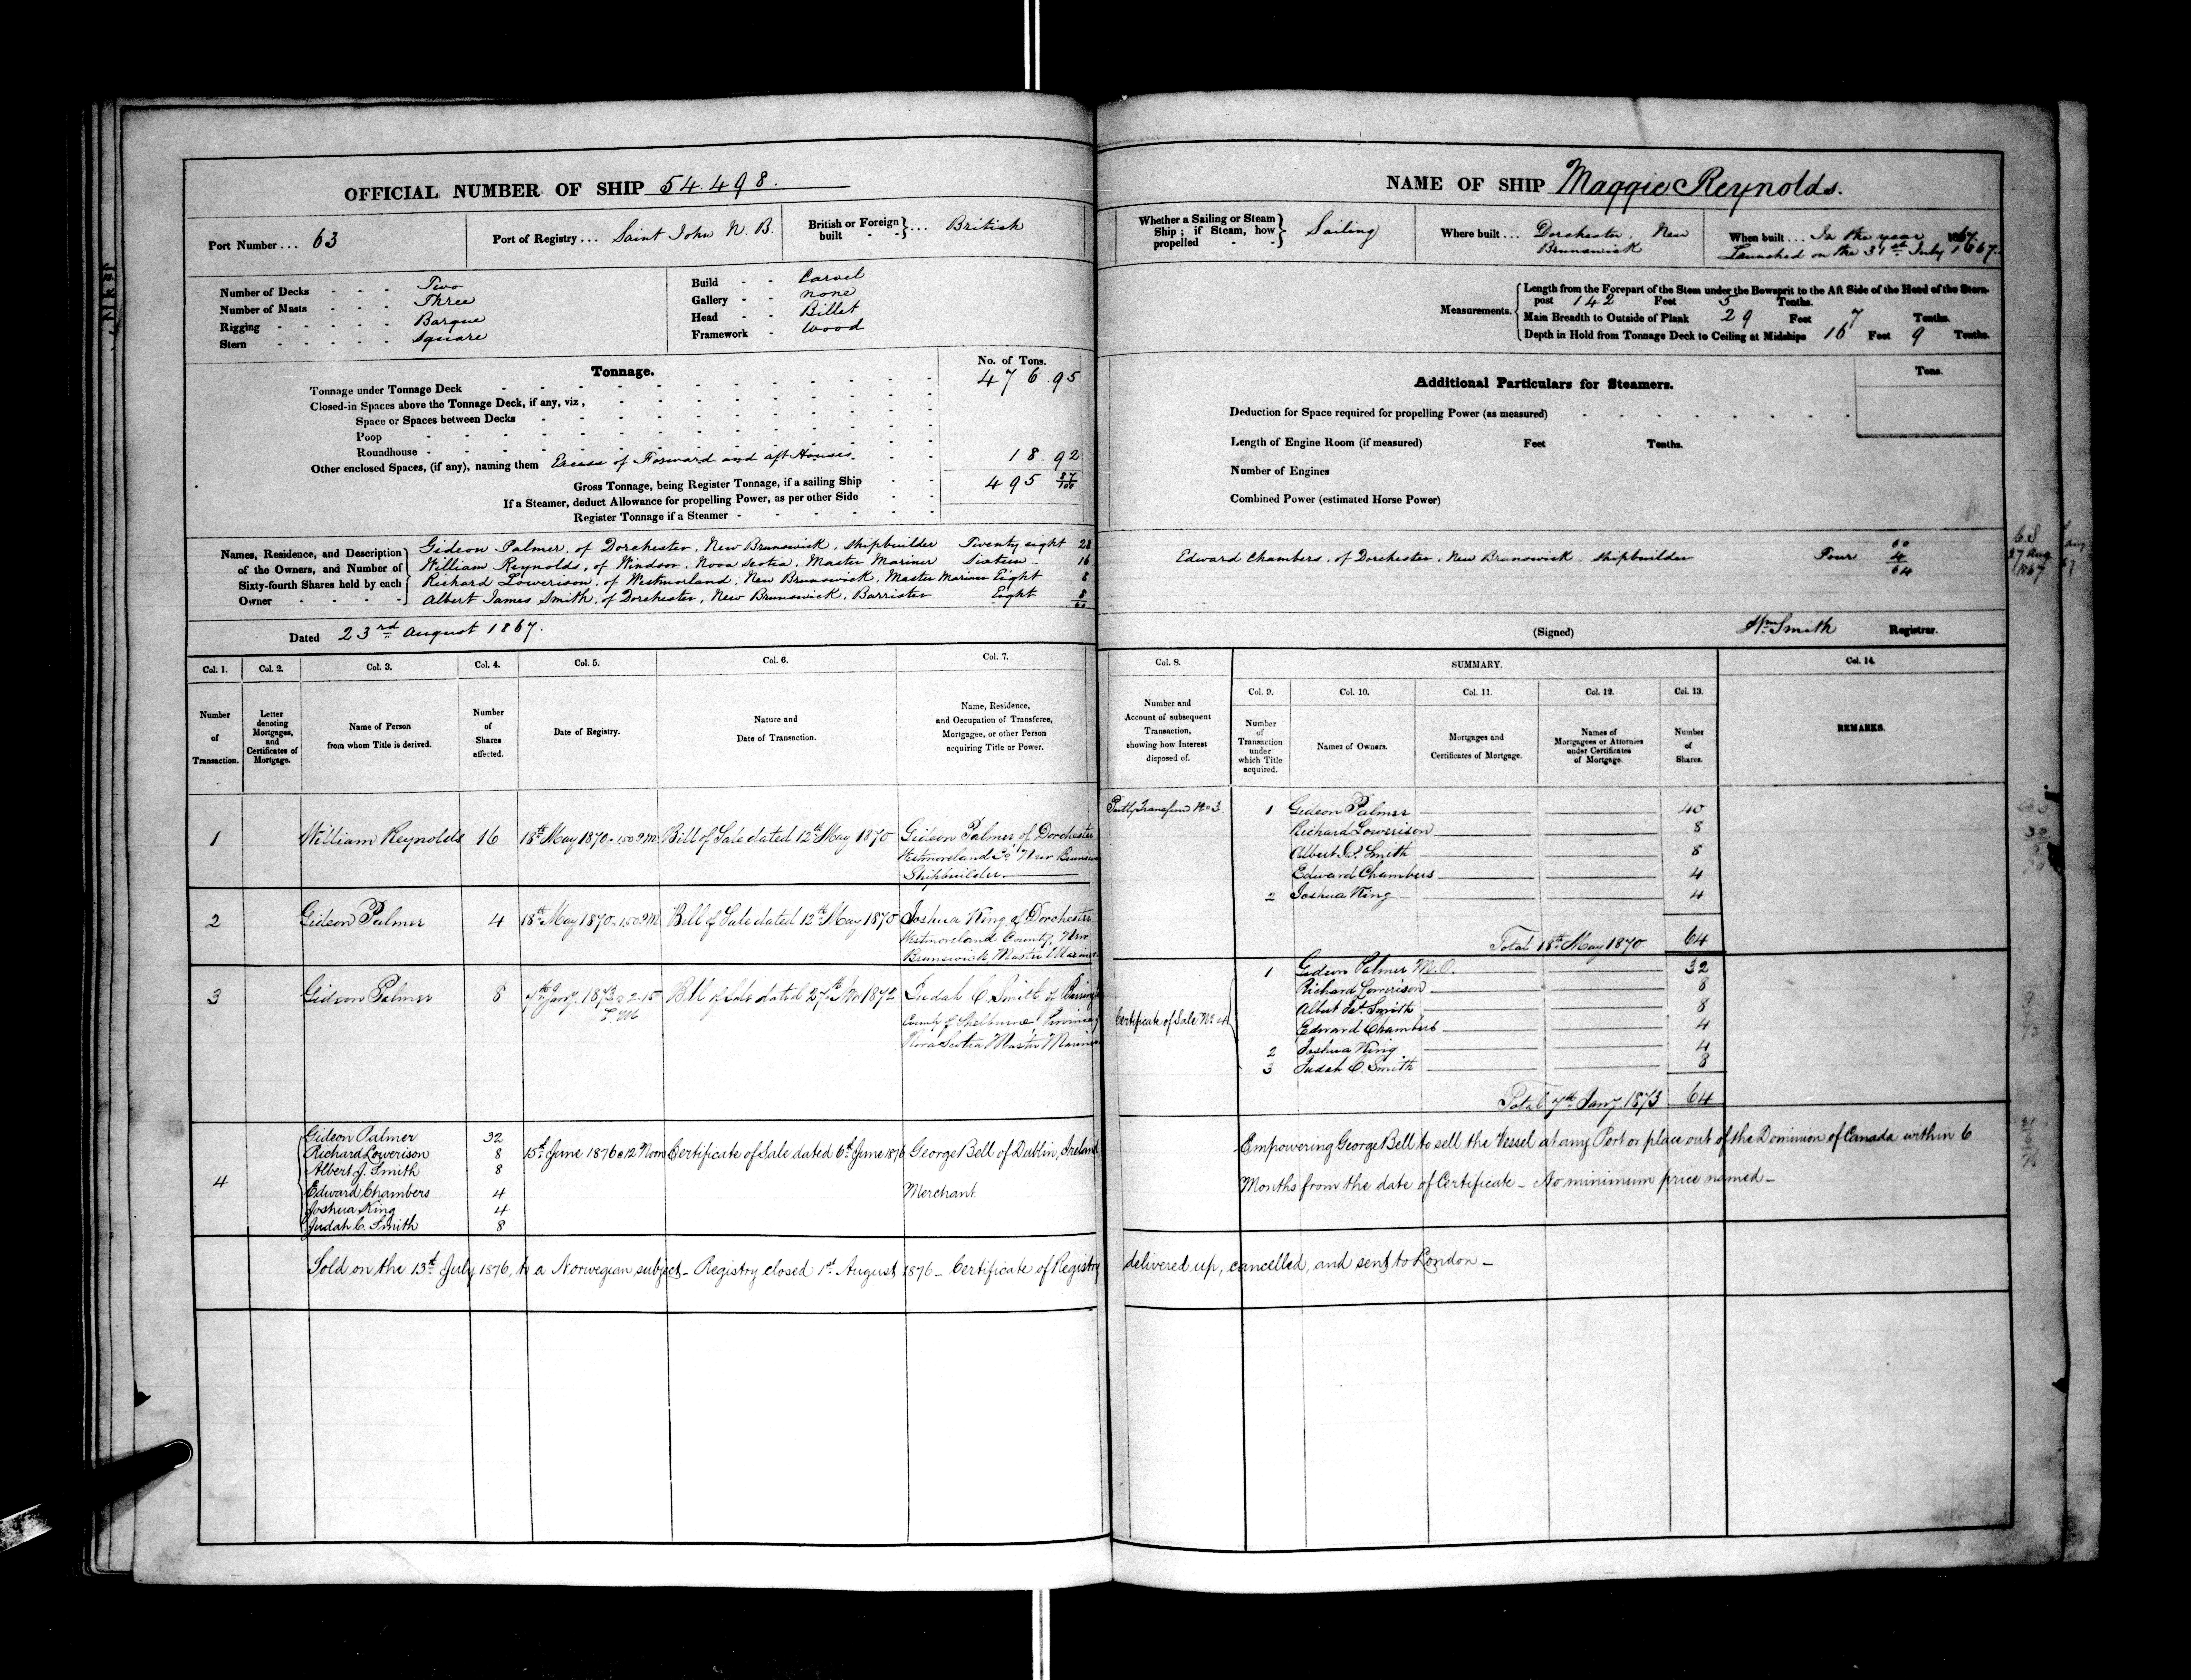 OFFICIAL NUMBER OF SHIP 54.498.
Port Number... 63
Port of Registry... Saint John N. B.
British or Foreign built - - }... British
Number of Decks - - - Two
Number of Masts - - - Three
Rigging - - - - - Barque
Stern - - - - - Square
Build - - Carvel
Gallery - - none
Head - - Billet
Framework - Wood
Tonnage.
No. of Tons.
Tonnage under Tonnage Deck 476.95
Closed-in Spaces above the Tonnage Deck, if any, viz,
Space or Spaces between Decks
Poop
Roundhouse
Other enclosed Spaces, (if any), naming them Excess of Forward and aft Houses. 18.92
Gross Tonnage, being Register Tonnage, if a sailing Ship 495 87/100
If a Steamer, deduct Allowance for propelling Power, as per other Side
Register Tonnage if a Steamer
Names, Residence, and Description of the Owners, and Number of Sixty-fourth Shares held by each Owner
Gideon Palmer, of Dorchester, New Brunswick, Shipbuilder Twenty eight 28
William Reynolds, of Windsor, Nova Scotia, Master Mariner Sixteen 16
Richard Lowerison, of Westmorland, New Brunswick, Master Mariner Eight 8
Albert James Smith, of Dorchester, New Brunswick, Barrister Eight 8
60
Dated 23rd August 1867.
Col. 1. Col. 2. Col. 3. Col. 4. Col. 5. Col. 6. Col. 7.
Number of Transaction.
Letter denoting Mortgages, and Certificates of Mortgage.
Name of Person from whom Title is derived.
Number of Shares affected.
Date of Registry.
Nature and Date of Transaction.
Name, Residence, and Occupation of Transferee, Mortgagee, or other Person acquiring Title or Power.
1 William Reynolds 16 18th May 1870 Bill of Sale dated 12th May 1870 Gideon Palmer of Dorchester
Westmoreland Co New Brunswick
Shipbuilder
2 Gideon Palmer 4 18th May 1870 Bill of Sale dated 12th May 1870 Joshua King of Dorchester
Westmoreland County, New
Brunswick, Master Mariner
3 Gideon Palmer 8 7th Jany. 1873 @ 2.15 Bill of Sale dated 27th Nov 1872 Judah C. Smith of
P.M County of Shelburne, Province
Nova Scotia Master Mariner
4
Gideon Palmer 32
Richard Lowerison 8 15th June 1876 @ 12 Noon Certificate of Sale dated 6th June 1876 George Bell of Dublin, Ireland.
Albert J. Smith 8
Edward Chambers 4 Merchant.
Joshua King 4
Judah C. Smith 8
Sold on the 13th July 1876, to a Norwegian subject - Registry closed 1st August 1876 - Certificate of Registry delivered up, cancelled, and sent to London -
NAME OF SHIP Maggie Reynolds.
Whether a Sailing or Steam Ship; if Steam, how propelled - - } Sailing
Where built... Dorchester, New
Brunswick
When built... In the year 1867.
Launched on the 31st July 1867.
Measurements.
Length from the Forepart of the Stem under the Bowsprit to the Aft Side of the Head of the Stern-
post 142 Feet 5 Tenths.
Main Breadth to Outside of Plank 29 Feet 7 Tenths.
Depth in Hold from Tonnage Deck to Ceiling at Midships 16 Feet 9 Tenths.
Additional Particulars for Steamers.
Tons.
Deduction for Space required for propelling Power (as measured)
Length of Engine Room (if measured) Feet Tenths.
Number of Engines
Combined Power (estimated Horse Power)
60
Edward Chambers, of Dorchester, New Brunswick, Shipbuilder Four 4
64
63
27 Aug
1867
(Signed) Wm Smith Registrar.
Col. 8. SUMMARY. Col. 14.
Col. 9. Col. 10. Col. 11. Col. 12. Col. 13.
Number and Account of subsequent Transaction, showing how Interest disposed of.
Number of Transaction under which Title acquired.
Names of Owners.
Mortgages and Certificates of Mortgage.
Names of Mortgagees or Attornies under Certificates of Mortgage.
Number of Shares.
REMARKS.
Partly Transferred No 3. 1 Gideon Palmer 40
Richard Lowerison 8
Albert Js. Smith 8
Edward Chambers 4
2 Joshua King 4
Total 18th May 1870 64
1 Gideon Palmer M.O. 32
Richard Lowerison 8
Albert Js. Smith 8
Certificate of Sale No. 4 Edward Chambers 4
2 Joshua King 4
3 Judah C. Smith 8
Total 7th Jany. 1873 64
Empowering George Bell to sell the Vessel at any Port or place out of the Dominion of Canada within 6
Months from the date of Certificate - No minimum price named -